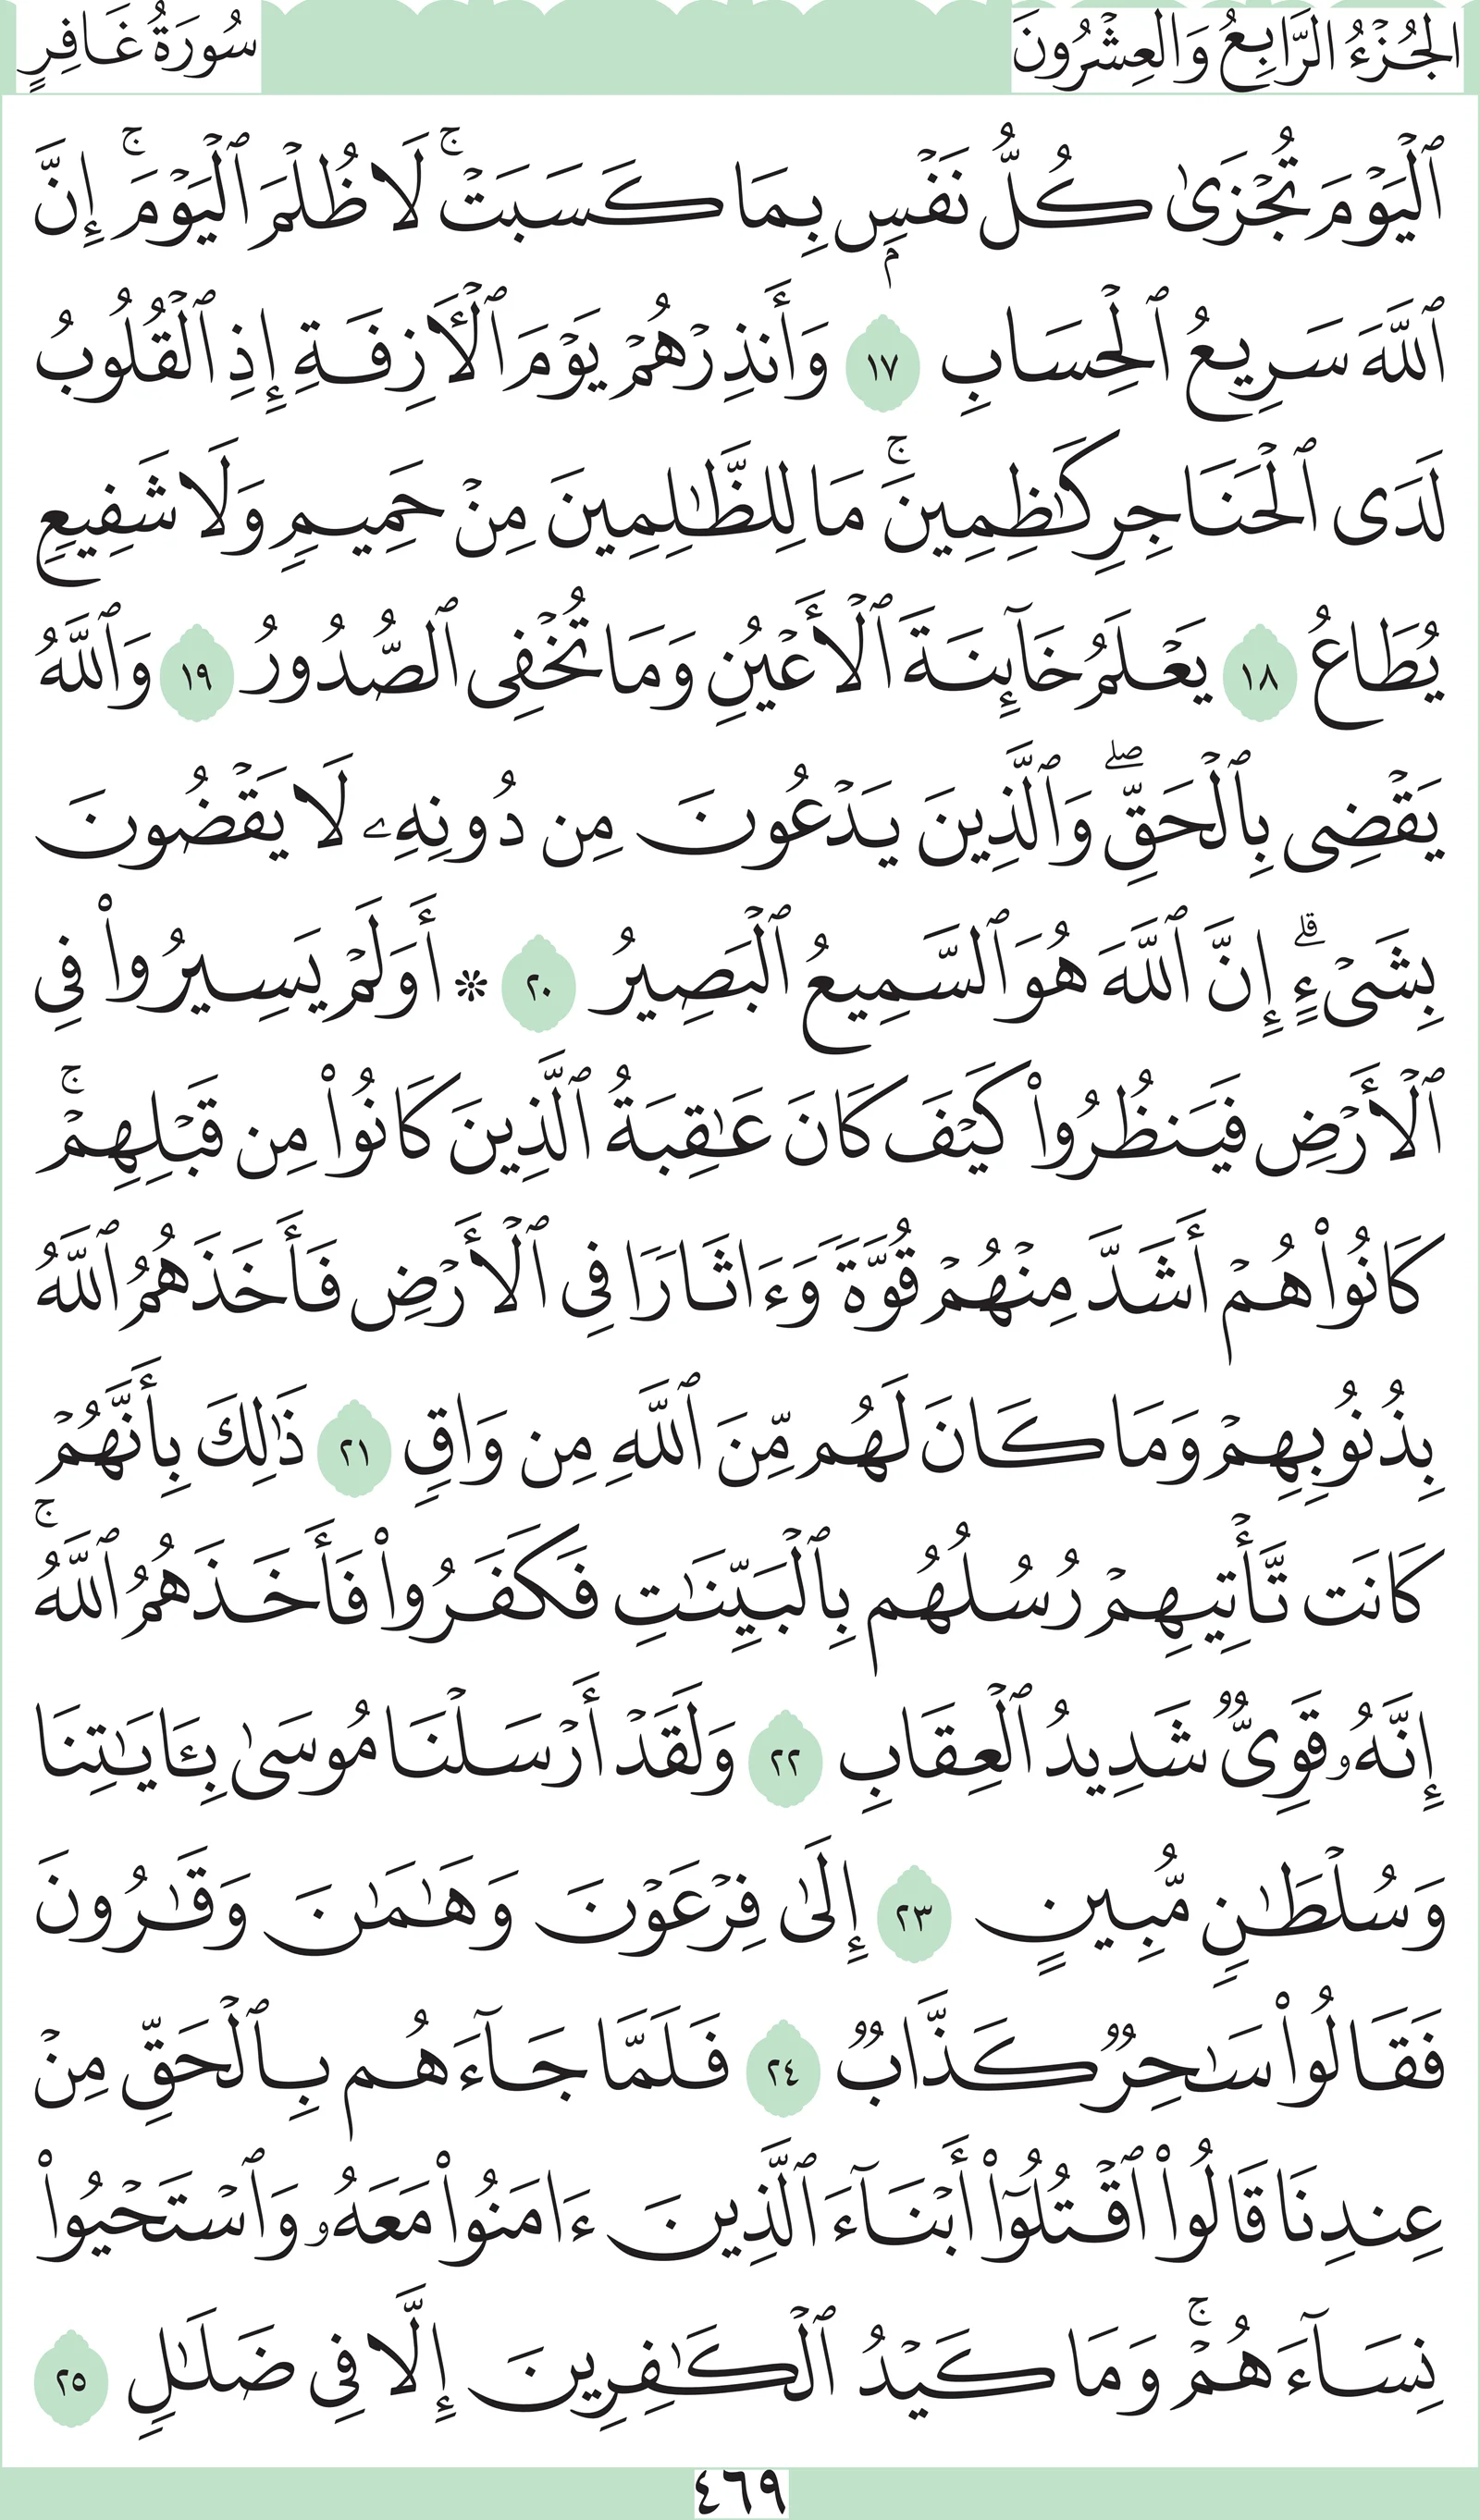 الجُزْءُ الرَّابِعُ وَالْعِشْرُونَ
سُورَةُ غَافِرٍ
ٱلْيَوْمَ تُجْزَىٰ كُلُّ نَفْسِۭ بِمَا كَسَبَتْۚ لَا ظُلْمَ ٱلْيَوْمَۚ إِنَّ
ٱللَّهَ سَرِيعُ ٱلْحِسَابِ ١٧ وَأَنذِرْهُمْ يَوْمَ ٱلْأَزِفَةِ إِذِ ٱلْقُلُوبُ
لَدَى ٱلْحَنَاجِرِ كَٰظِمِينَۚ مَا لِلظَّٰلِمِينَ مِنْ حَمِيمٍ وَلَا شَفِيعٍ
يُطَاعُ ١٨ يَعْلَمُ خَآئِنَةَ ٱلْأَعْيُنِ وَمَا تُخْفِى ٱلصُّدُورُ ١٩ وَٱللَّهُ
يَقْضِى بِٱلْحَقِّۖ وَٱلَّذِينَ يَدْعُونَ مِن دُونِهِۦ لَا يَقْضُونَ
بِشَىْءٍۗ إِنَّ ٱللَّهَ هُوَ ٱلسَّمِيعُ ٱلْبَصِيرُ ٢٠ ❇ أَوَلَمْ يَسِيرُوا۟ فِى
ٱلْأَرْضِ فَيَنظُرُوا۟ كَيْفَ كَانَ عَٰقِبَةُ ٱلَّذِينَ كَانُوا۟ مِن قَبْلِهِمْۚ
كَانُوا۟ هُمْ أَشَدَّ مِنْهُمْ قُوَّةً وَءَاثَارًا فِى ٱلْأَرْضِ فَأَخَذَهُمُ ٱللَّهُ
بِذُنُوبِهِمْ وَمَا كَانَ لَهُم مِّنَ ٱللَّهِ مِن وَاقٍ ٢١ ذَٰلِكَ بِأَنَّهُمْ
كَانَت تَّأْتِيهِمْ رُسُلُهُم بِٱلْبَيِّنَٰتِ فَكَفَرُوا۟ فَأَخَذَهُمُ ٱللَّهُۚ
إِنَّهُۥ قَوِىٌّ شَدِيدُ ٱلْعِقَابِ ٢٢ وَلَقَدْ أَرْسَلْنَا مُوسَىٰ بِـَٔايَٰتِنَا
وَسُلْطَٰنٍ مُّبِينٍ ٢٣ إِلَىٰ فِرْعَوْنَ وَهَٰمَٰنَ وَقَٰرُونَ
فَقَالُوا۟ سَٰحِرٌ كَذَّابٌ ٢٤ فَلَمَّا جَآءَهُم بِٱلْحَقِّ مِنْ
عِندِنَا قَالُوا۟ ٱقْتُلُوٓا۟ أَبْنَآءَ ٱلَّذِينَ ءَامَنُوا۟ مَعَهُۥ وَٱسْتَحْيُوا۟
نِسَآءَهُمْۚ وَمَا كَيْدُ ٱلْكَٰفِرِينَ إِلَّا فِى ضَلَٰلٍ ٢٥
٤٦٩